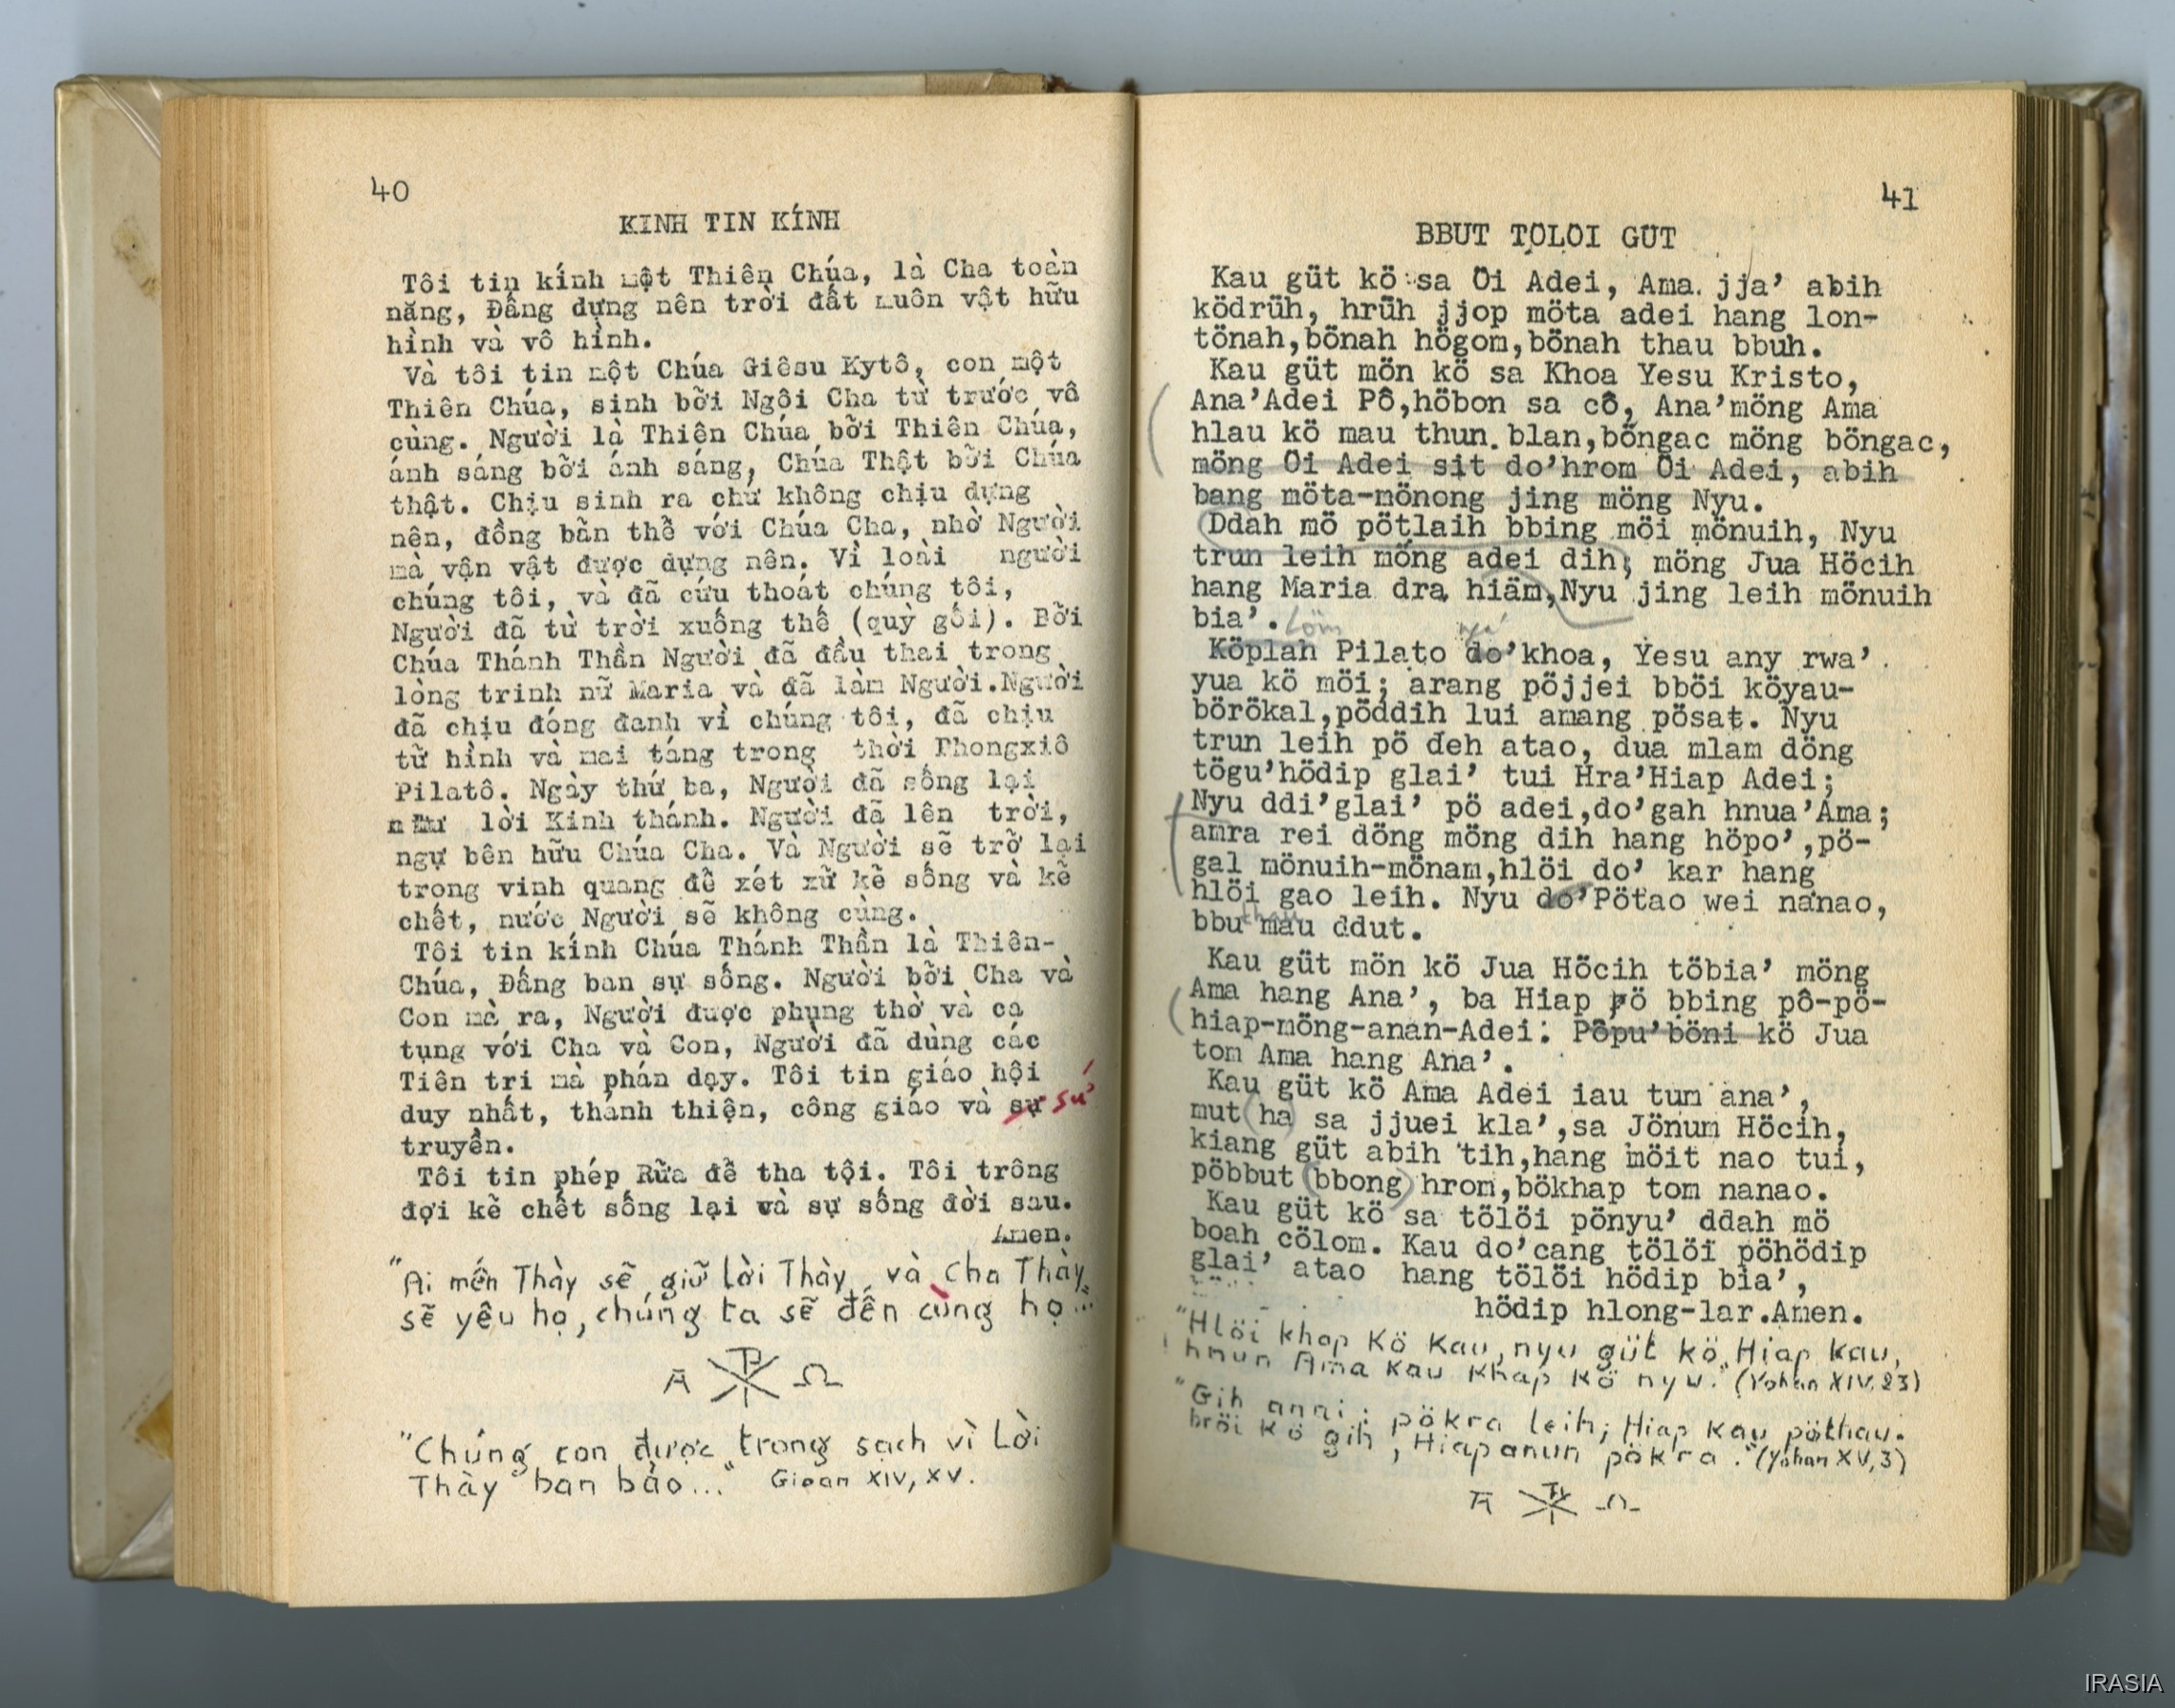 40
KINH TIN KÍNH
Tôi tin kính một Thiên Chúa, là Cha toàn
năng, Đấng dựng nên trời đất muôn vật hữu
hình và vô hình.
Và tôi tin một Chúa Giêsu Kytô, con một
Thiên Chúa, sinh bởi Ngôi Cha từ trước vô
cùng. Người là Thiên Chúa bởi Thiên Chúa,
ánh sáng bởi ánh sáng, Chúa Thật bởi Chúa
thật. Chịu sinh ra chứ không chịu dựng
nên, đồng bản thể với Chúa Cha, nhờ Người
mà vận vật được dựng nên. Vì loài người
chúng tôi, và đã cứu thoát chúng tôi,
Người đã từ trời xuống thế (quỳ gối). Bởi
Chúa Thánh Thần Người đã đầu thai trong
lòng trinh nữ Maria và đã làm Người.Người
đã chịu đóng đanh vì chúng tôi, đã chịu
tử hình và mai táng trong thời Phongxiô
Pilatô. Ngày thứ ba, Người đã sống lại
như lời Kinh thánh. Người đã lên trời,
ngự bên hữu Chúa Cha. Và Người sẽ trở lại
trong vinh quang để xét xử kẻ sống và kẻ
chết, nước Người sẽ không cùng.
Tôi tin kính Chúa Thánh Thần là Thiên-
Chúa, Đấng ban sự sống. Người bởi Cha và
Con mà ra, Người được phụng thờ và ca
tụng với Cha và Con, Người đã dùng các
Tiên tri mà phán dạy. Tôi tin giáo hội
duy nhất, thánh thiện, công giáo và sự sứ
truyền.
Tôi tin phép Rửa để tha tội. Tôi trông
đợi kẻ chết sống lại và sự sống đời sau.
Amen.
"Ai mến Thày sẽ giữ lời Thày, và Cha Thày
sẽ yêu họ, chúng ta sẽ đến cùng họ..."
A Ω
"Chúng con được trong sạch vì Lời
Thày ban bảo..." Gioan XIV, XV.
41
BBUT TÖLÖI GÜT
Kau güt kö sa Öi Adei, Ama jja' abih
ködrüh, hrüh jjop möta adei hang lon-
tönah,bönah högom,bönah thau bbuh.
Kau güt mön kö sa Khoa Yesu Kristo,
Ana'Adei Pô,höbon sa cô, Ana'möng Ama
hlau kö mau thun blan,böngac möng böngac,
möng Öi Adei sit do'hrom Öi Adei, abih
bang möta-mönong jing möng Nyu.
Ddah mö pötlaih bbing möi mönuih, Nyu
trun leih möng adei dih; möng Jua Höcih
hang Maria dra hiäm,Nyu jing leih mönuih
bia'. löm
Köplah Pilato do'khoa, Yesu any rwa'
yua kö möi; arang pöjjei bböi köyau-
börökal,pöddih lui amang pösat. Nyu
trun leih pö deh atao, dua mlam döng
tögu'hödip glai' tui Hra'Hiap Adei;
Nyu ddi'glai' pö adei,do'gah hnua'Ama;
amra rei döng möng dih hang höpo',pö-
gal mönuih-mönam,hlöi do' kar hang
hlöi gao leih. Nyu do'Pötao wei nanao,
thau
bbu mau ddut.
Kau güt mön kö Jua Höcih töbia' möng
Ama hang Ana', ba Hiap pö bbing pô-pö-
hiap-möng-anan-Adei. Pôpu'böni kö Jua
tom Ama hang Ana'.
Kau güt kö Ama Adei iau tum ana',
mut (ha) sa jjuei kla',sa Jönum Höcih,
kiang güt abih tih,hang möit nao tui,
pöbbut (bbong) hrom,bökhap tom nanao.
Kau güt kö sa tölöi pönyu' ddah mö
boah cölom. Kau do'cang tölöi pöhödip
glai' atao hang tölöi hödip bia',
hödip hlong-lar.Amen.
"Hlöi khap Kö Kau, nyu güt kö Hiap kau,
hnun Ama kau khap kö nyu." (Yohan XIV,23)
"Gih anni: pökra leih; Hiap Kau pöthau
bröi kö gih, Hiap anun pökra." (Yohan XV,3)
A Ω
IRASIA